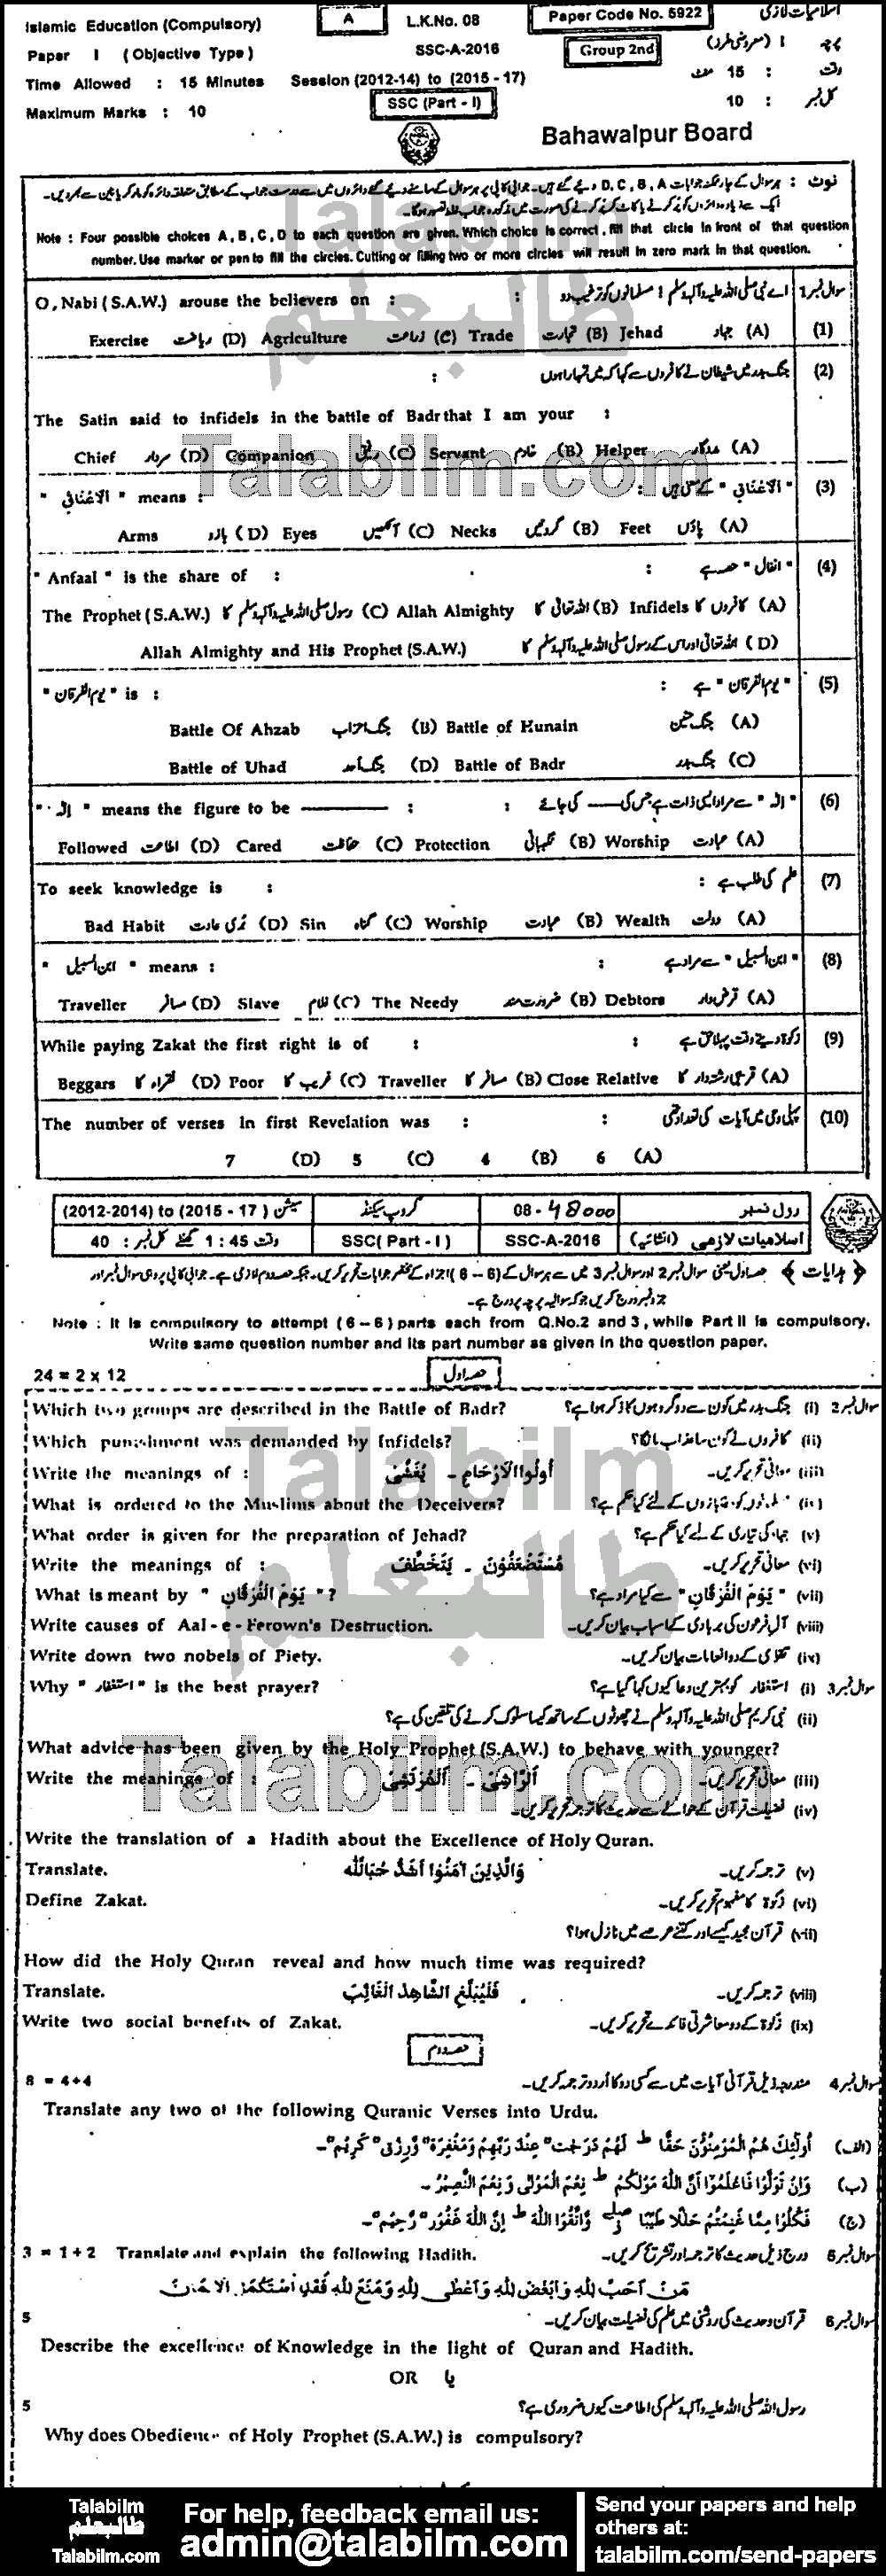 Islamic Education (Compulsory)
A
L.K.No. 08
Paper Code No. 5922
اسلامیات لازمی
Paper I ( Objective Type )
SSC-A-2016
Group 2nd
پرچہ : I (معروضی طرز)
Time Allowed : 15 Minutes
Session (2012-14) to (2015 - 17)
وقت : 15 منٹ
Maximum Marks : 10
SSC (Part - I)
کل نمبر : 10
Bahawalpur Board
نوٹ : ہر سوال کے چار ممکنہ جوابات D, C, B, A دیئے گئے ہیں۔ جوابی کاپی پر ہر سوال کے سامنے دیئے گئے دائروں میں سے درست جواب کے مطابق متعلقہ دائرہ کو مارکر یا پین سے بھر دیں۔
ایک سے زیادہ دائروں کو پُر کرنے یا کاٹ کر پُر کرنے کی صورت میں مذکورہ جواب غلط تصور ہوگا۔
Note : Four possible choices A, B, C, D to each question are given. Which choice is correct, fill that circle in front of that question
number. Use marker or pen to fill the circles. Cutting or filling two or more circles will result in zero mark in that question.
سوال نمبر 1
O, Nabi (S.A.W.) arouse the believers on : : اے نبی صلی اللہ علیہ وآلہ وسلم ! مسلمانوں کو ترغیب دو
(1) (A) جہاد Jehad (B) تجارت Trade (C) زراعت Agriculture (D) ریاضت Exercise
(2) جنگ بدر میں شیطان نے کافروں سے کہا کہ میں تمہارا ہوں :
The Satin said to infidels in the battle of Badr that I am your :
(A) مددگار Helper (B) خادم Servant (C) رفیق Companion (D) سردار Chief
(3) "الاعناق" کے معنی ہیں : "الاعناق" means :
(A) پاؤں Feet (B) گردنیں Necks (C) آنکھیں Eyes (D) بازو Arms
(4) "انفال" حصہ ہے : "Anfaal" is the share of :
(A) کافروں کا Infidels (B) اللہ تعالیٰ کا Allah Almighty (C) رسول صلی اللہ علیہ وآلہ وسلم کا The Prophet (S.A.W.)
(D) اللہ تعالیٰ اور اس کے رسول صلی اللہ علیہ وآلہ وسلم کا Allah Almighty and His Prophet (S.A.W.)
(5) "یوم الفرقان" ہے : "یوم الفرقان" is :
(A) جنگ حنین Battle of Hunain (B) جنگ احزاب Battle Of Ahzab
(C) جنگ بدر Battle of Badr (D) جنگ احد Battle of Uhad
(6) "الٰہ" سے مراد ایسی ذات ہے جس کی ——— کی جائے : "الٰہ" means the figure to be ——— :
(A) عبادت Worship (B) نگہبانی Protection (C) حفاظت Cared (D) اطاعت Followed
(7) علم کی طلب ہے : To seek knowledge is :
(A) دولت Wealth (B) عبادت Worship (C) گناہ Sin (D) بُری عادت Bad Habit
(8) "ابن السبیل" سے مراد ہے : "ابن السبیل" means :
(A) قرض دار Debtors (B) ضرورت مند The Needy (C) غلام Slave (D) مسافر Traveller
(9) زکوٰۃ دیتے وقت پہلا حق ہے : While paying Zakat the first right is of :
(A) قریبی رشتہ دار کا Close Relative (B) مسافر کا Traveller (C) غریب کا Poor (D) فقراء کا Beggars
(10) پہلی وحی میں آیات کی تعداد تھی : The number of verses in first Revelation was :
(A) 6 (B) 4 (C) 5 (D) 7
رول نمبر
08 - 48000
گروپ سیکنڈ
سیشن (2012-2014) to (2015 - 17)
اسلامیات لازمی (انشائیہ)
SSC-A-2016
SSC( Part - I )
وقت 1 : 45 گھنٹے کل نمبر : 40
﴿ ہدایات ﴾ حصہ اول یعنی سوال نمبر 2 اور سوال نمبر 3 میں سے ہر سوال کے (6 – 6) اجزاء کے مختصر جوابات تحریر کریں۔ جبکہ حصہ دوم لازمی ہے۔ جوابی کاپی پر وہی سوال نمبر اور
جزو نمبر درج کریں جو کہ سوالیہ پرچہ پر درج ہے۔
Note : It is compulsory to attempt (6 – 6) parts each from Q.No.2 and 3, while Part II is compulsory.
Write same question number and its part number as given in the question paper.
24 = 2 x 12
حصہ اول
Which two groups are described in the Battle of Badr? سوال نمبر 2 (i) جنگ بدر میں کون سے دو گروہوں کا ذکر ہوا ہے؟
Which punishment was demanded by Infidels? (ii) کافروں نے کون سا عذاب مانگا؟
Write the meanings of : اُولُوا الْاَرْحَامِ ۔ یُغَشِّیْ (iii) معانی تحریر کریں۔
What is ordered to the Muslims about the Deceivers? (iv) مسلمانوں کو دغابازوں کے لئے کیا حکم ہے؟
What order is given for the preparation of Jehad? (v) جہاد کی تیاری کے لئے کیا حکم ہے؟
Write the meanings of : مُسْتَضْعَفُوْنَ ۔ یَتَخَطَّفَ (vi) معانی تحریر کریں۔
What is meant by "یَوْمَ الْفُرْقَانِ" ? (vii) "یَوْمَ الْفُرْقَانِ" سے کیا مراد ہے؟
Write causes of Aal - e - Ferown's Destruction. (viii) آلِ فرعون کی بربادی کے اسباب بیان کریں۔
Write down two nobels of Piety. (ix) تقویٰ کے دو انعامات بیان کریں۔
Why "استغفار" is the best prayer? سوال نمبر 3 (i) استغفار کو بہترین دعا کیوں کہا گیا ہے؟
(ii) نبی کریم صلی اللہ علیہ وآلہ وسلم نے چھوٹوں کے ساتھ کیسا سلوک کرنے کی تلقین کی ہے؟
What advice has been given by the Holy Prophet (S.A.W.) to behave with younger?
Write the meanings of : اَلرَّاشِیْ ۔ اَلْمُرْتَشِیْ (iii) معانی تحریر کریں۔
(iv) فضیلت قرآن کے حوالے سے حدیث کا ترجمہ تحریر کریں۔
Write the translation of a Hadith about the Excellence of Holy Quran.
Translate. وَالَّذِیْنَ اٰمَنُوْا اَشَدُّ حُبًّا لِّلّٰہِ (v) ترجمہ کریں۔
Define Zakat. (vi) زکوٰۃ کا مفہوم تحریر کریں۔
(vii) قرآن مجید کیسے اور کتنے عرصے میں نازل ہوا؟
How did the Holy Quran reveal and how much time was required?
Translate. فَلْیُبَلِّغِ الشَّاھِدُ الْغَائِبَ (viii) ترجمہ کریں۔
Write two social benefits of Zakat. (ix) زکوٰۃ کے دو معاشرتی فائدے تحریر کریں۔
حصہ دوم
8 = 4+4 سوال نمبر 4 مندرجہ ذیل قرآنی آیات میں سے کسی دو کا اُردو ترجمہ کریں۔
Translate any two of the following Quranic Verses into Urdu.
(الف) اُولٰٓئِکَ ھُمُ الْمُؤْمِنُوْنَ حَقًّا ط لَھُمْ دَرَجٰت" عِنْدَ رَبِّھِمْ وَمَغْفِرَۃ" وَّرِزْق" کَرِیْم"۔
(ب) وَاِنْ تَوَلَّوْا فَاعْلَمُوْٓا اَنَّ اللّٰہَ مَوْلٰکُمْ ط نِعْمَ الْمَوْلٰی وَنِعْمَ النَّصِیْرُ۔
(ج) فَکُلُوْا مِمَّا غَنِمْتُمْ حَلٰلًا طَیِّبًا وَّاتَّقُوا اللّٰہَ ط اِنَّ اللّٰہَ غَفُوْر" رَّحِیْم"۔
3 = 1+2 Translate and explain the following Hadith. سوال نمبر 5 درج ذیل حدیث کا ترجمہ اور تشریح کریں۔
مَنْ اَحَبَّ لِلّٰہِ وَاَبْغَضَ لِلّٰہِ وَاَعْطٰی لِلّٰہِ وَمَنَعَ لِلّٰہِ فَقَدِ اسْتَکْمَلَ الْاِیْمَانَ
5 سوال نمبر 6 قرآن و حدیث کی روشنی میں علم کی فضیلت بیان کریں۔
Describe the excellence of Knowledge in the light of Quran and Hadith.
OR یا
5 رسول اللہ صلی اللہ علیہ وآلہ وسلم کی اطاعت کیوں ضروری ہے؟
Why does Obedience of Holy Prophet (S.A.W.) is compulsory?
Talabilm
طالبعلم
Talabilm.com
Talabilm
طالبعلم
Talabilm.com
Talabilm
طالبعلم
Talabilm.com
For help, feedback email us:
admin@talabilm.com
Send your papers and help
others at:
talabilm.com/send-papers